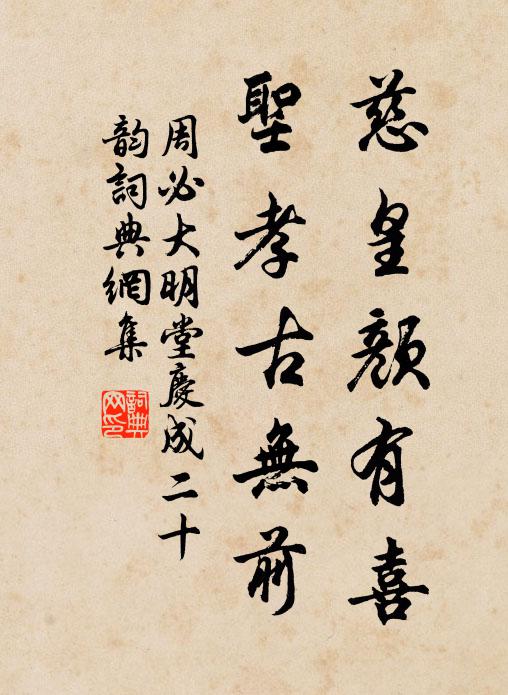 慈皇顏有喜
聖孝古無前
周必大明堂慶成二十
韵詞典網集
詞典網印